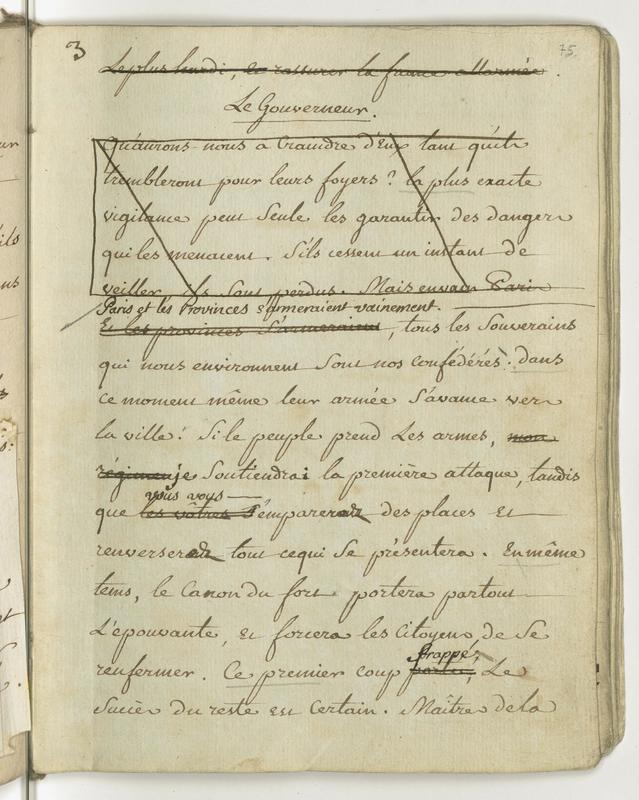 3
75.
Le plus hardi, et rassurer la france allarmée.
Le Gouverneur.
Qu'aurons-nous a Craindre d'Eux tant qu'ils
trembleront pour leurs foyers? la plus exacte
vigilance peut seule les garantir des dangers
qui les menacent. S'ils cessent un instant de
veiller, ils sont perdus. Mais envain Paris
Paris et les Provinces s'armeraient vainement.
Et les provinces s'armeraient, tous les Souverains
qui nous environnent sont nos confédérés. dans
ce moment même leur armée s'avance vers
la ville! Si le peuple prend les armes, mon
régiment je soutiendrai la première attaque, tandis
vous vous
que les vôtres s'empareront des places et
renverseront tout ce qui se présentera. En même
tems, le Canon du fort portera partout
L'épouvante, et forcera les Citoyens de se
frappé,
renfermer. Ce premier coup porté, Le
succès du reste est certain. Maître de la